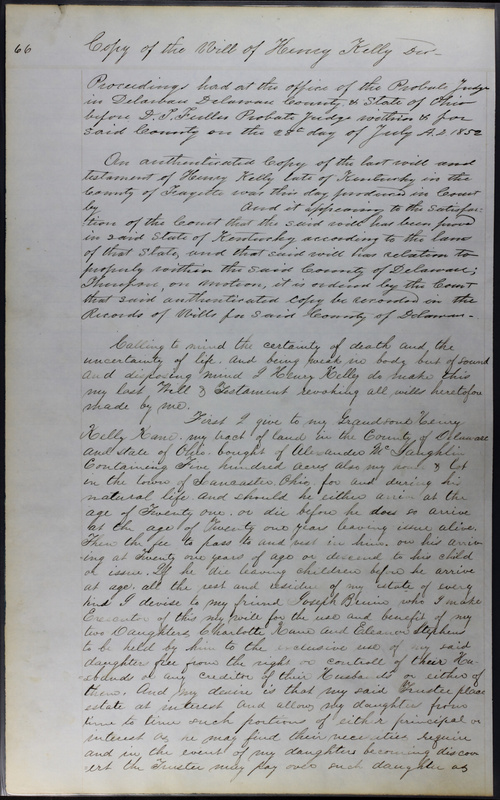 66
Copy of the Will of Henry Kelly Dec
Proceedings had at the office of the Probate Judge
in Delaware Delaware County & State of Ohio
before T. Fuller Probate Judge within & for
said County on the day of July A.D 1852
An authenticated Copy of the last will and
testament of Henry Kelly late of Kentucky in the
County of Fayette was this day produced in Court
by And it appearing to the satisfac-
tion of the Court that the said will has been proved
in said State of Kentucky according to the laws
of that State, and that said will has relation to
property within the said County of Delaware;
Therefore, on motion, it is ordered by the Court
that said authenticated Copy be recorded in the
Records of Wills for said County of Delaware-
Calling to mind the certainty of death and the
uncertainty of life. And being weak in body but of sound
and disposing mind I Henry Kelly do make this
my last Will & Testament revoking all wills heretofore
made by me.
First I give to my Grandson Henry
Kelly Kane. my tract of land in the County of Delaware
and state of Ohio. bought of Alexander McLaughlin
Containing Five hundred acres also my & lot
in the town of Lancaster Ohio, for and during his
natural life. And should he either arrive at the
age of Twenty one. or die before he does so arrive
at the age of Twenty one years leaving issue alive.
Then the fee to pass to and vest in him. on his arriv-
ing at Twenty one years of age or descend to his child
or issue. If he die leaving children before he arrive
at age. all the rest and residue of my estate of every
kind I devise to my friend Joseph who I make
Executor of this my will for the use and benefit of my
two Daughters Charlotte Kane and Eleanor Stephens
to be held by him to the exclusive use of my said
daughter free from the right or controll of their Hu-
sbands or any creditor of their Husbands or either of
them. And my desire is that my said Trustee place
estate at interest and allow my daughter from
time to time such portions of either principal or
interest as he may find their necessities require
and in the event of my daughters becoming discov-
ert the Trustee may pay over such daughter as